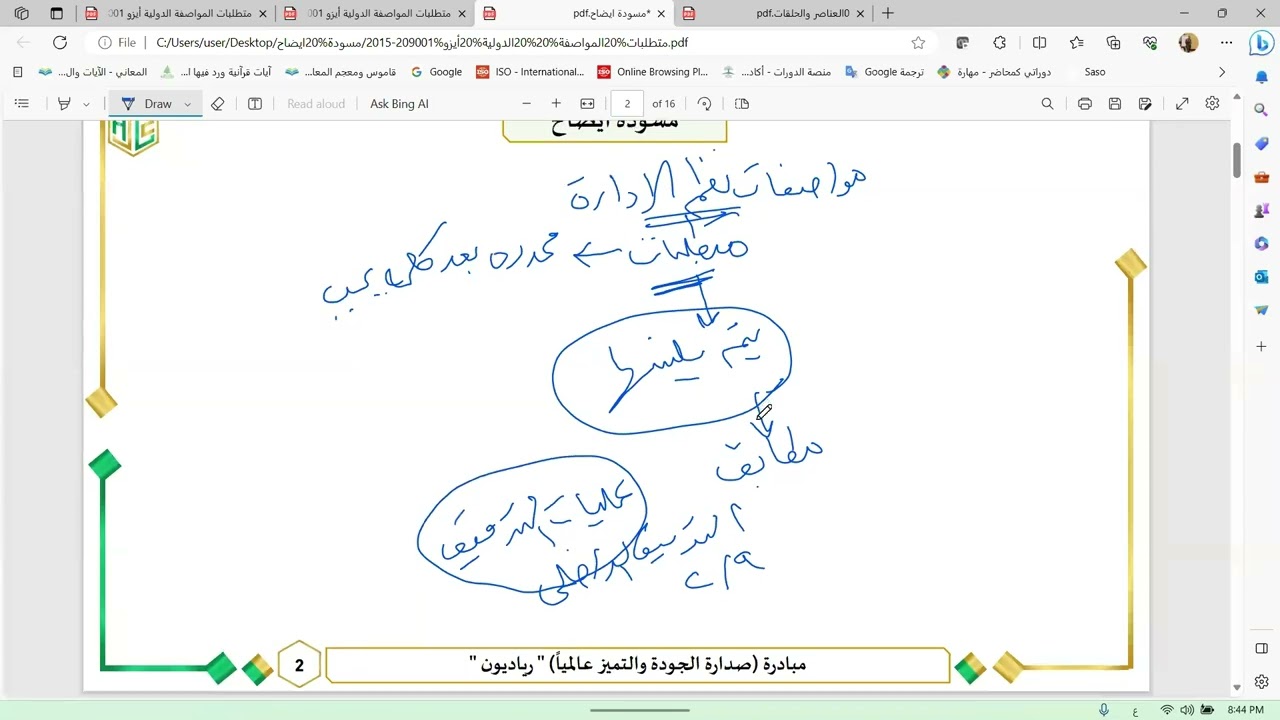 متطلبات المواصفة الدولية أيزو 001
متطلبات المواصفة الدولية أيزو 001
*مسودة ايضاح.pdf
0العناصر والحلقات.pdf
File
C:/Users/user/Desktop/متطلبات%20المواصفة%20الدولية%20أيزو%209001-2015/مسودة%20ايضاح.pdf
المعاني - الآيات وال...
آيات قرآنية ورد فيها ا...
قاموس ومعجم المعا...
Google
ISO - Internationa...
Online Browsing Pl...
منصة الدورات - أكاد...
ترجمة Google
دوراتي كمحاضر - مهارة
Saso
Draw
Read aloud
Ask Bing AI
2 of 16
مسودة ايضاح
مواصفات نظم الإدارة
متطلبات ← محدده بعد كلمة يجب
يتم
مطابق
عمليات التدقيق
التدقيق الداخلي
٩/٢
2
مبادرة (صدارة الجودة والتميز عالمياً) " رياديون "
ع
8:44 PM